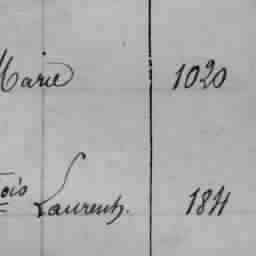 Marie 1020
ois Laurent. 184